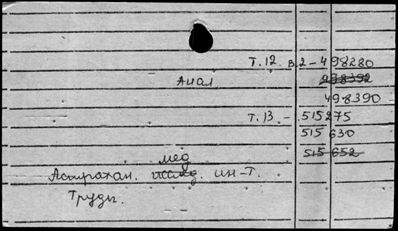 Т. 12. в.2 - 498280
Анал 298392
498390
Т. 13. - 515275
515 630
515 652
мед
Астрахан. ин-т.
Труды.